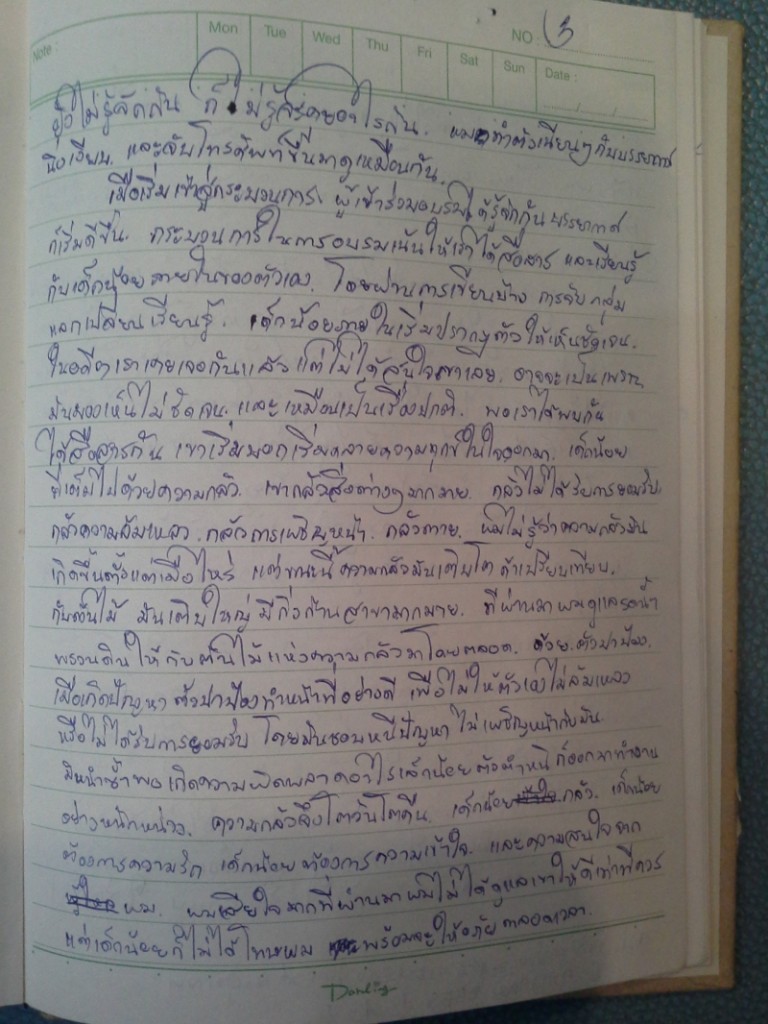 NO 3
Note : Mon Tue Wed Thu Fri Sat Sun Date :
ยังไม่รู้จักกัน ก็ไม่รู้จะคุยอะไรกัน. ผมทำตัวเนียนๆกับบรรยากาศ
นิ่งเงียบ. และจับโทรศัพท์ขึ้นมาดูเหมือนกัน.
เมื่อเริ่มเข้าสู่กระบวนการ ผู้เข้าร่วมอบรมได้รู้จักกัน บรรยากาศ
ก็เริ่มดีขึ้น. กระบวนการในการอบรมเน้นให้เราได้สื่อสาร และเรียนรู้
กับเด็กน้อยภายในของตัวเอง. โดยผ่านการเขียนบ้าง การจับกลุ่ม
แลกเปลี่ยนเรียนรู้. เด็กน้อยภายในเริ่มปรากฏตัวให้เห็นชัดเจน.
ในอดีตเราเคยเจอกันแล้ว แต่ไม่ได้สนใจเขาเลย. อาจจะเป็นเพราะ
มันมองเห็นไม่ชัดเจน. และเหมือนเป็นเรื่องปกติ. พอเราได้พบกัน
ได้สื่อสารกัน เขาเริ่มบอกเริ่มคลายความทุกข์ในใจออกมา. เด็กน้อย
ที่เต็มไปด้วยความกลัว. เขากลัวสิ่งต่างๆมากมาย. กลัวไม่ได้รับการยอมรับ.
กลัวความล้มเหลว. กลัวการเผชิญหน้า. กลัวตาย. ผมไม่รู้ว่าความกลัวมัน
เกิดขึ้นตั้งแต่เมื่อไหร่ แต่ขณะนี้ความกลัวมันเติบโต ถ้าเปรียบเทียบ.
กับต้นไม้ มันเติบใหญ่ มีกิ่งก้านสาขามากมาย. ที่ผ่านมาผมดูแลรดน้ำ
พรวนดินให้กับต้นไม้แห่งความกลัวมาโดยตลอด. ด้วย.ตัวปกป้อง.
เมื่อเกิดปัญหา ตัวปกป้องทำหน้าที่อย่างดี เพื่อไม่ให้ตัวเองไม่ล้มเหลว
หรือไม่ได้รับการยอมรับ โดยมันชอบหนีปัญหา ไม่เผชิญหน้ากับมัน
มิหนำซ้ำพอเกิดความผิดพลาดอะไรเด็กน้อยตัวตำหนิ ก็ออกมาทำงาน
อย่างหนักหน่วง. ความกลัวจึงโตวันโตคืน. เด็กน้อย กลัว. เด็กน้อย
ต้องการความรัก เด็กน้อยต้องการความเข้าใจ. และความสนใจจาก
ผม. ผมเสียใจมากที่ผ่านมาผมไม่ได้ดูแลเขาให้ดีเท่าที่ควร
แต่เด็กน้อยก็ไม่ได้โทษผม พร้อมจะให้อภัยตลอดเวลา.